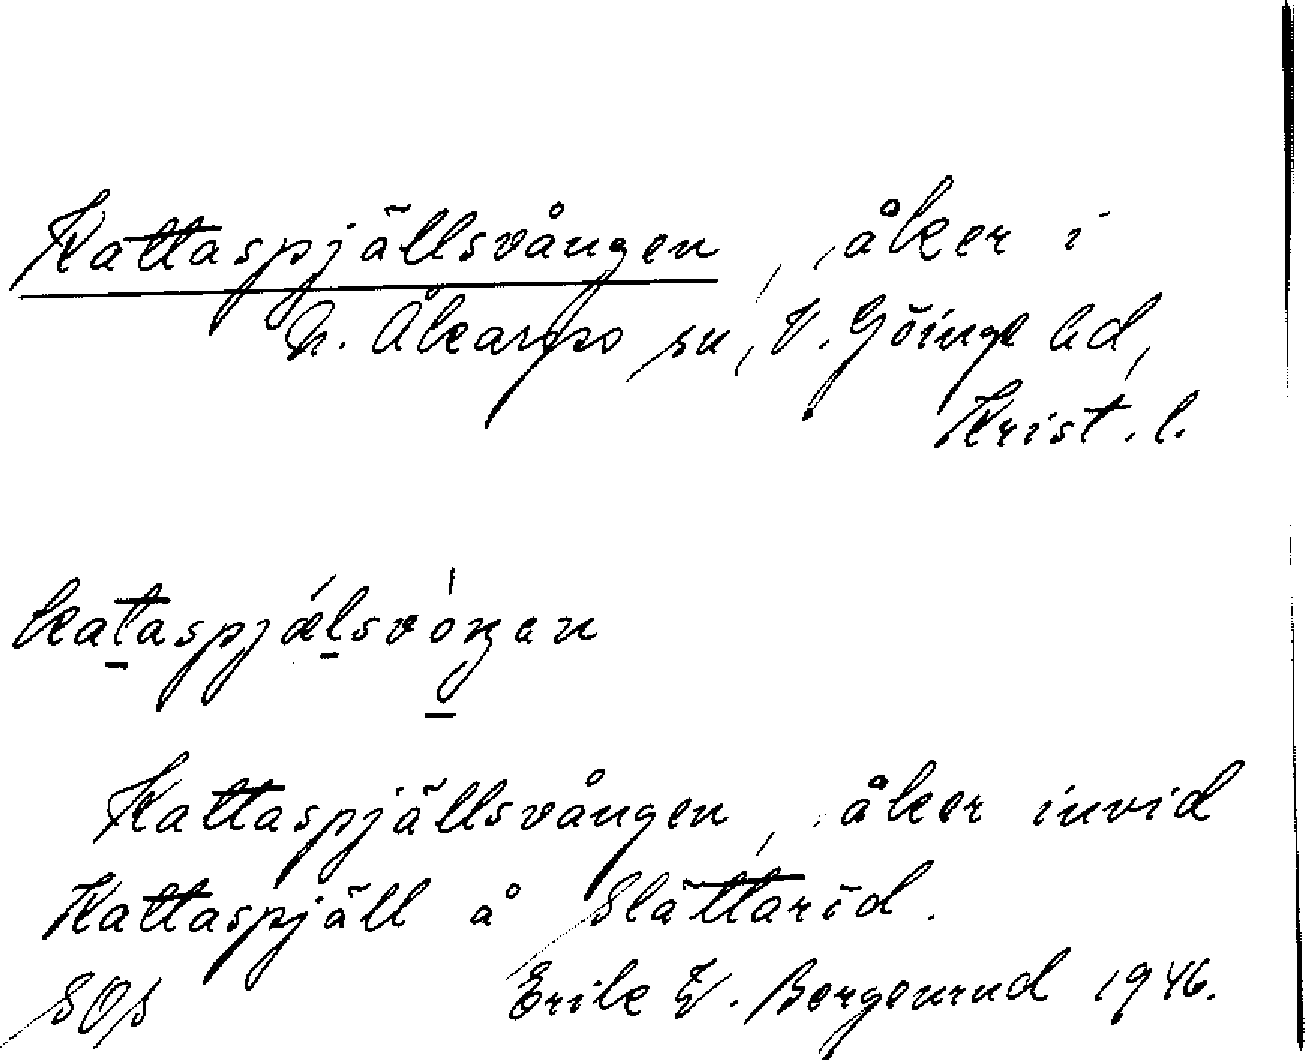 Kattaspjällsvången, åker i
N. Åkarps sn, V. Göinge hd,
Krist. l.
kataspjǽlsvóŋan
Kattaspjällsvången, åker invid
Kattaspjäll å Slättaröd.
SOS Erik W. Bergenrud 1946.